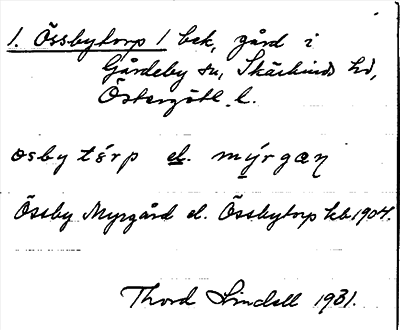 1. Össbytorp 1 bek, gård i
Gårdeby sn, Skärkinds hd,
Östergötl. l.
osby tórp el. mýrgaꞑ
Össby Myrgård el. Össbytorp kb 1904.
Thord Lindell 1931.